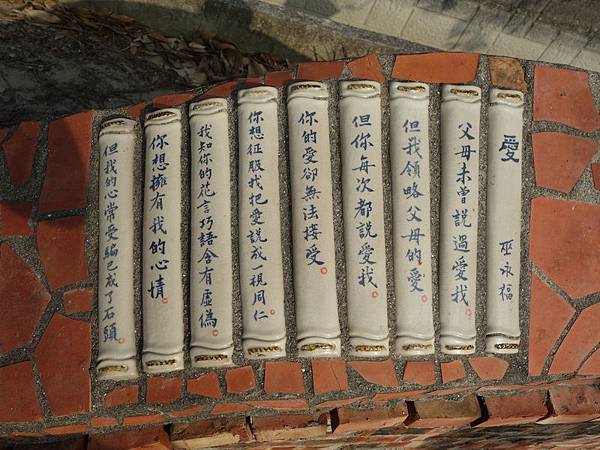 愛 巫永福
父母未曾說過愛我
但我領略父母的愛
但你每次都說愛我
你的愛卻無法接受
你想征服我把愛說成一視同仁
我知你的花言巧語含有虛偽
你想擁有我的心情
但我的心常受騙已成了石頭